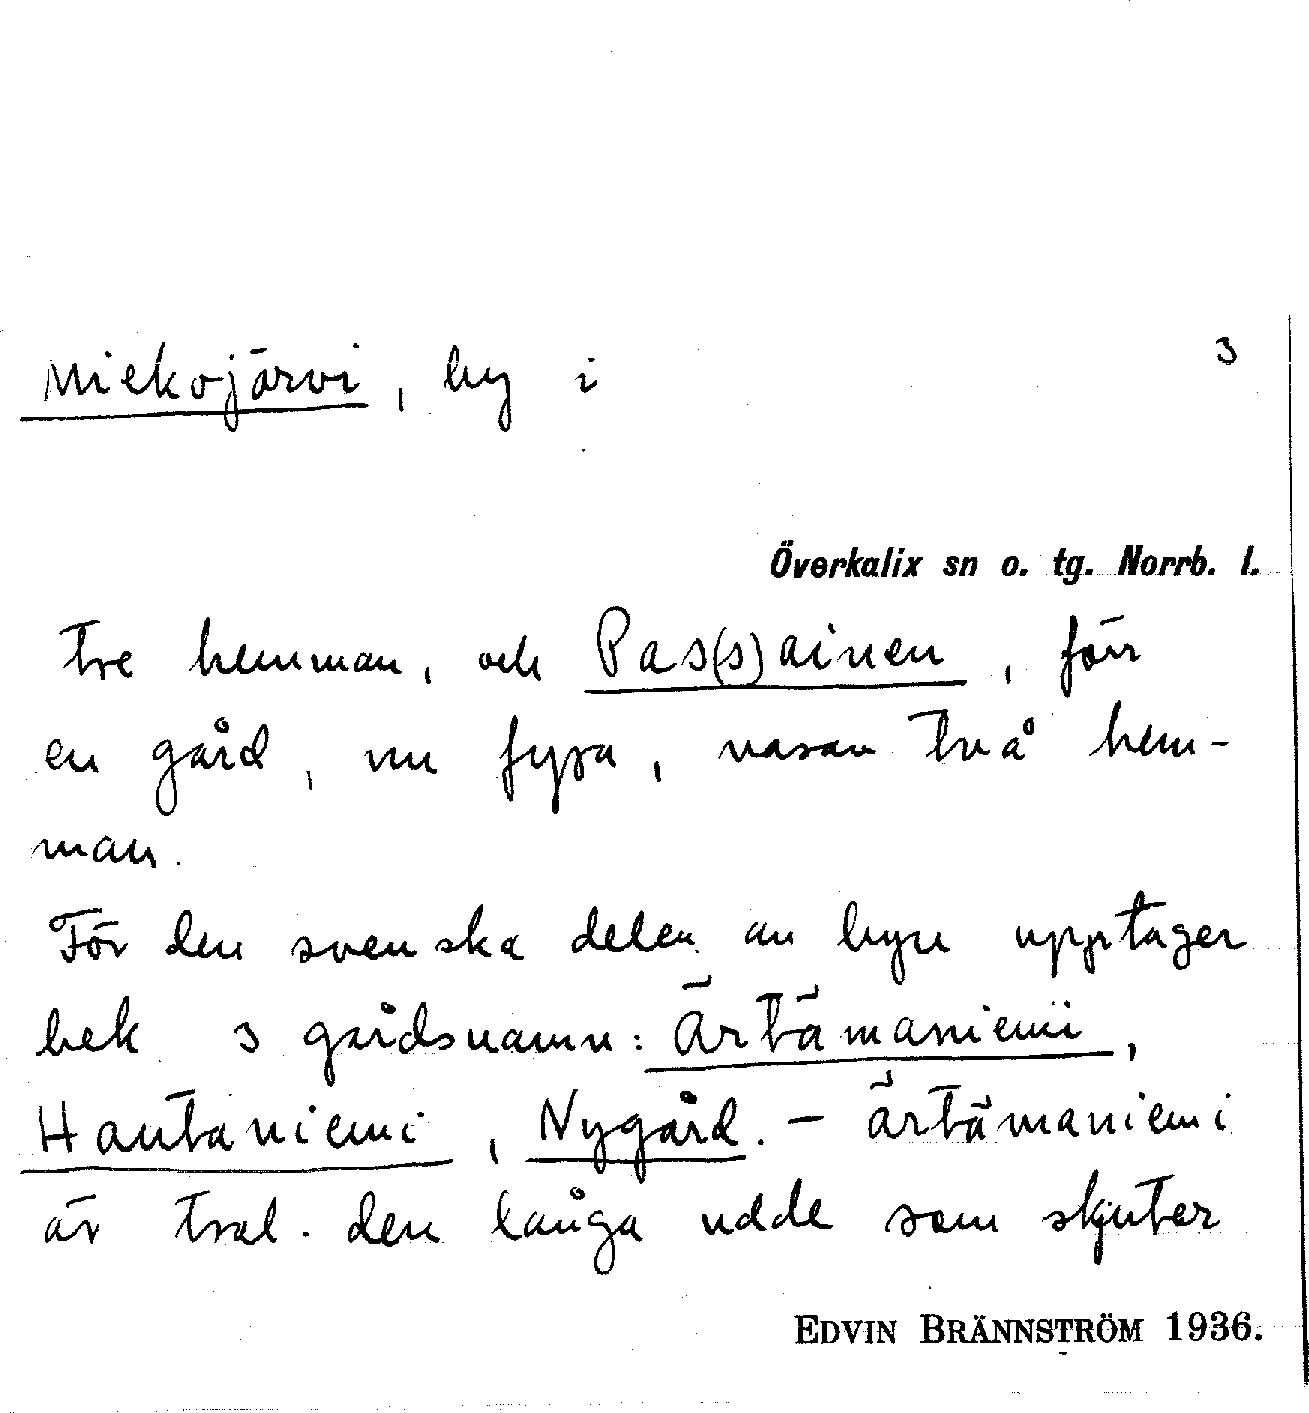 Miekojärvi, by i
3
Överkalix sn o. tg. Norrb. l.
tre hemman, och Pas(s)ainen, förr
en gård, nu fyra, varav två hem-
man.
För den svenska delen av byn upptager
bek 3 gårdsnamn: Ärtämaniemi,
Hautaniemi, Nygård. – ärtämaniemi
är trol. den långa udde som skjuter
EDVIN BRÄNNSTRÖM 1936.